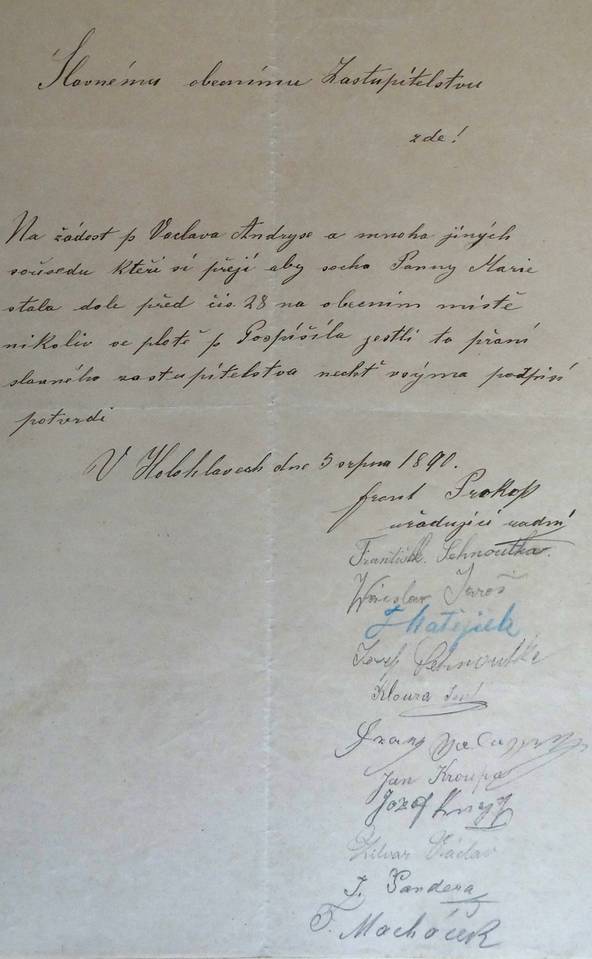 Slavnému obecnímu Zastupitelstvu
zde!
Na žádost p Vaclava Andryse a mnoha jiných
sousedu kteří si přejí aby socha Panny Marie
stala dole před čís. 28 na obecním místě
nikoliv ve plotě p Pospíšila jestli to přání
slavného zastupitelstva nechť svýma podpisi
potvrdi
V Holohlavech dne 5 srpna 1890.
frant Prokop
uřadující radní
Františk. Sehnoutka.
Jaroš
F Matějíček
Josef Sehnoutka
Klouza Jos
Franz
Jan Kroupa
Jozof
Zilvar Václav
J. Pandera
F. Macháček